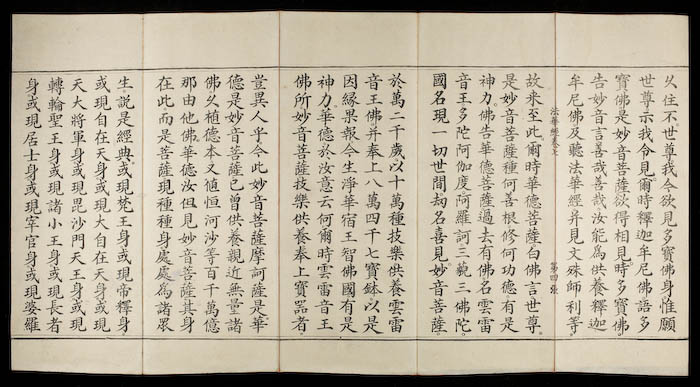 久住不世尊我今欲見多寶佛身惟願
世尊示我令見爾時釋迦牟尼佛語多
寶佛是妙音菩薩欲得相見時多寶佛
告妙音言善哉善哉汝能為供養釋迦
牟尼佛及聽法華經并見文殊師利等
法華經卷七 第四張
故来至此爾時華德菩薩白佛言世尊
是妙音菩薩種何善根修何功德有是
神力佛告華德菩薩過去有佛名雲雷
音王多陀阿伽度阿羅訶三藐三佛陀
國名現一切世間劫名喜見妙音菩薩
於萬二千歲以十萬種技樂供養雲雷
音王佛并奉上八萬四千七寶鉢以是
因緣果報今生淨華宿王智佛國有是
神力華德於汝意云何爾時雲雷音王
佛所妙音菩薩技樂供養奉上寶器者
豈異人乎今此妙音菩薩摩訶薩是華
德是妙音菩薩已曾供養親近無量諸
佛久植德本又值恒河沙等百千萬億
那由他佛華德汝但見妙音菩薩其身
在此而是菩薩現種種身處處為諸眾
生說是經典或現梵王身或現帝釋身
或現自在天身或現大自在天身或現
天大將軍身或現毘沙門天王身或現
轉輪聖王身或現諸小王身或現長者
身或現居士身或現宰官身或現婆羅